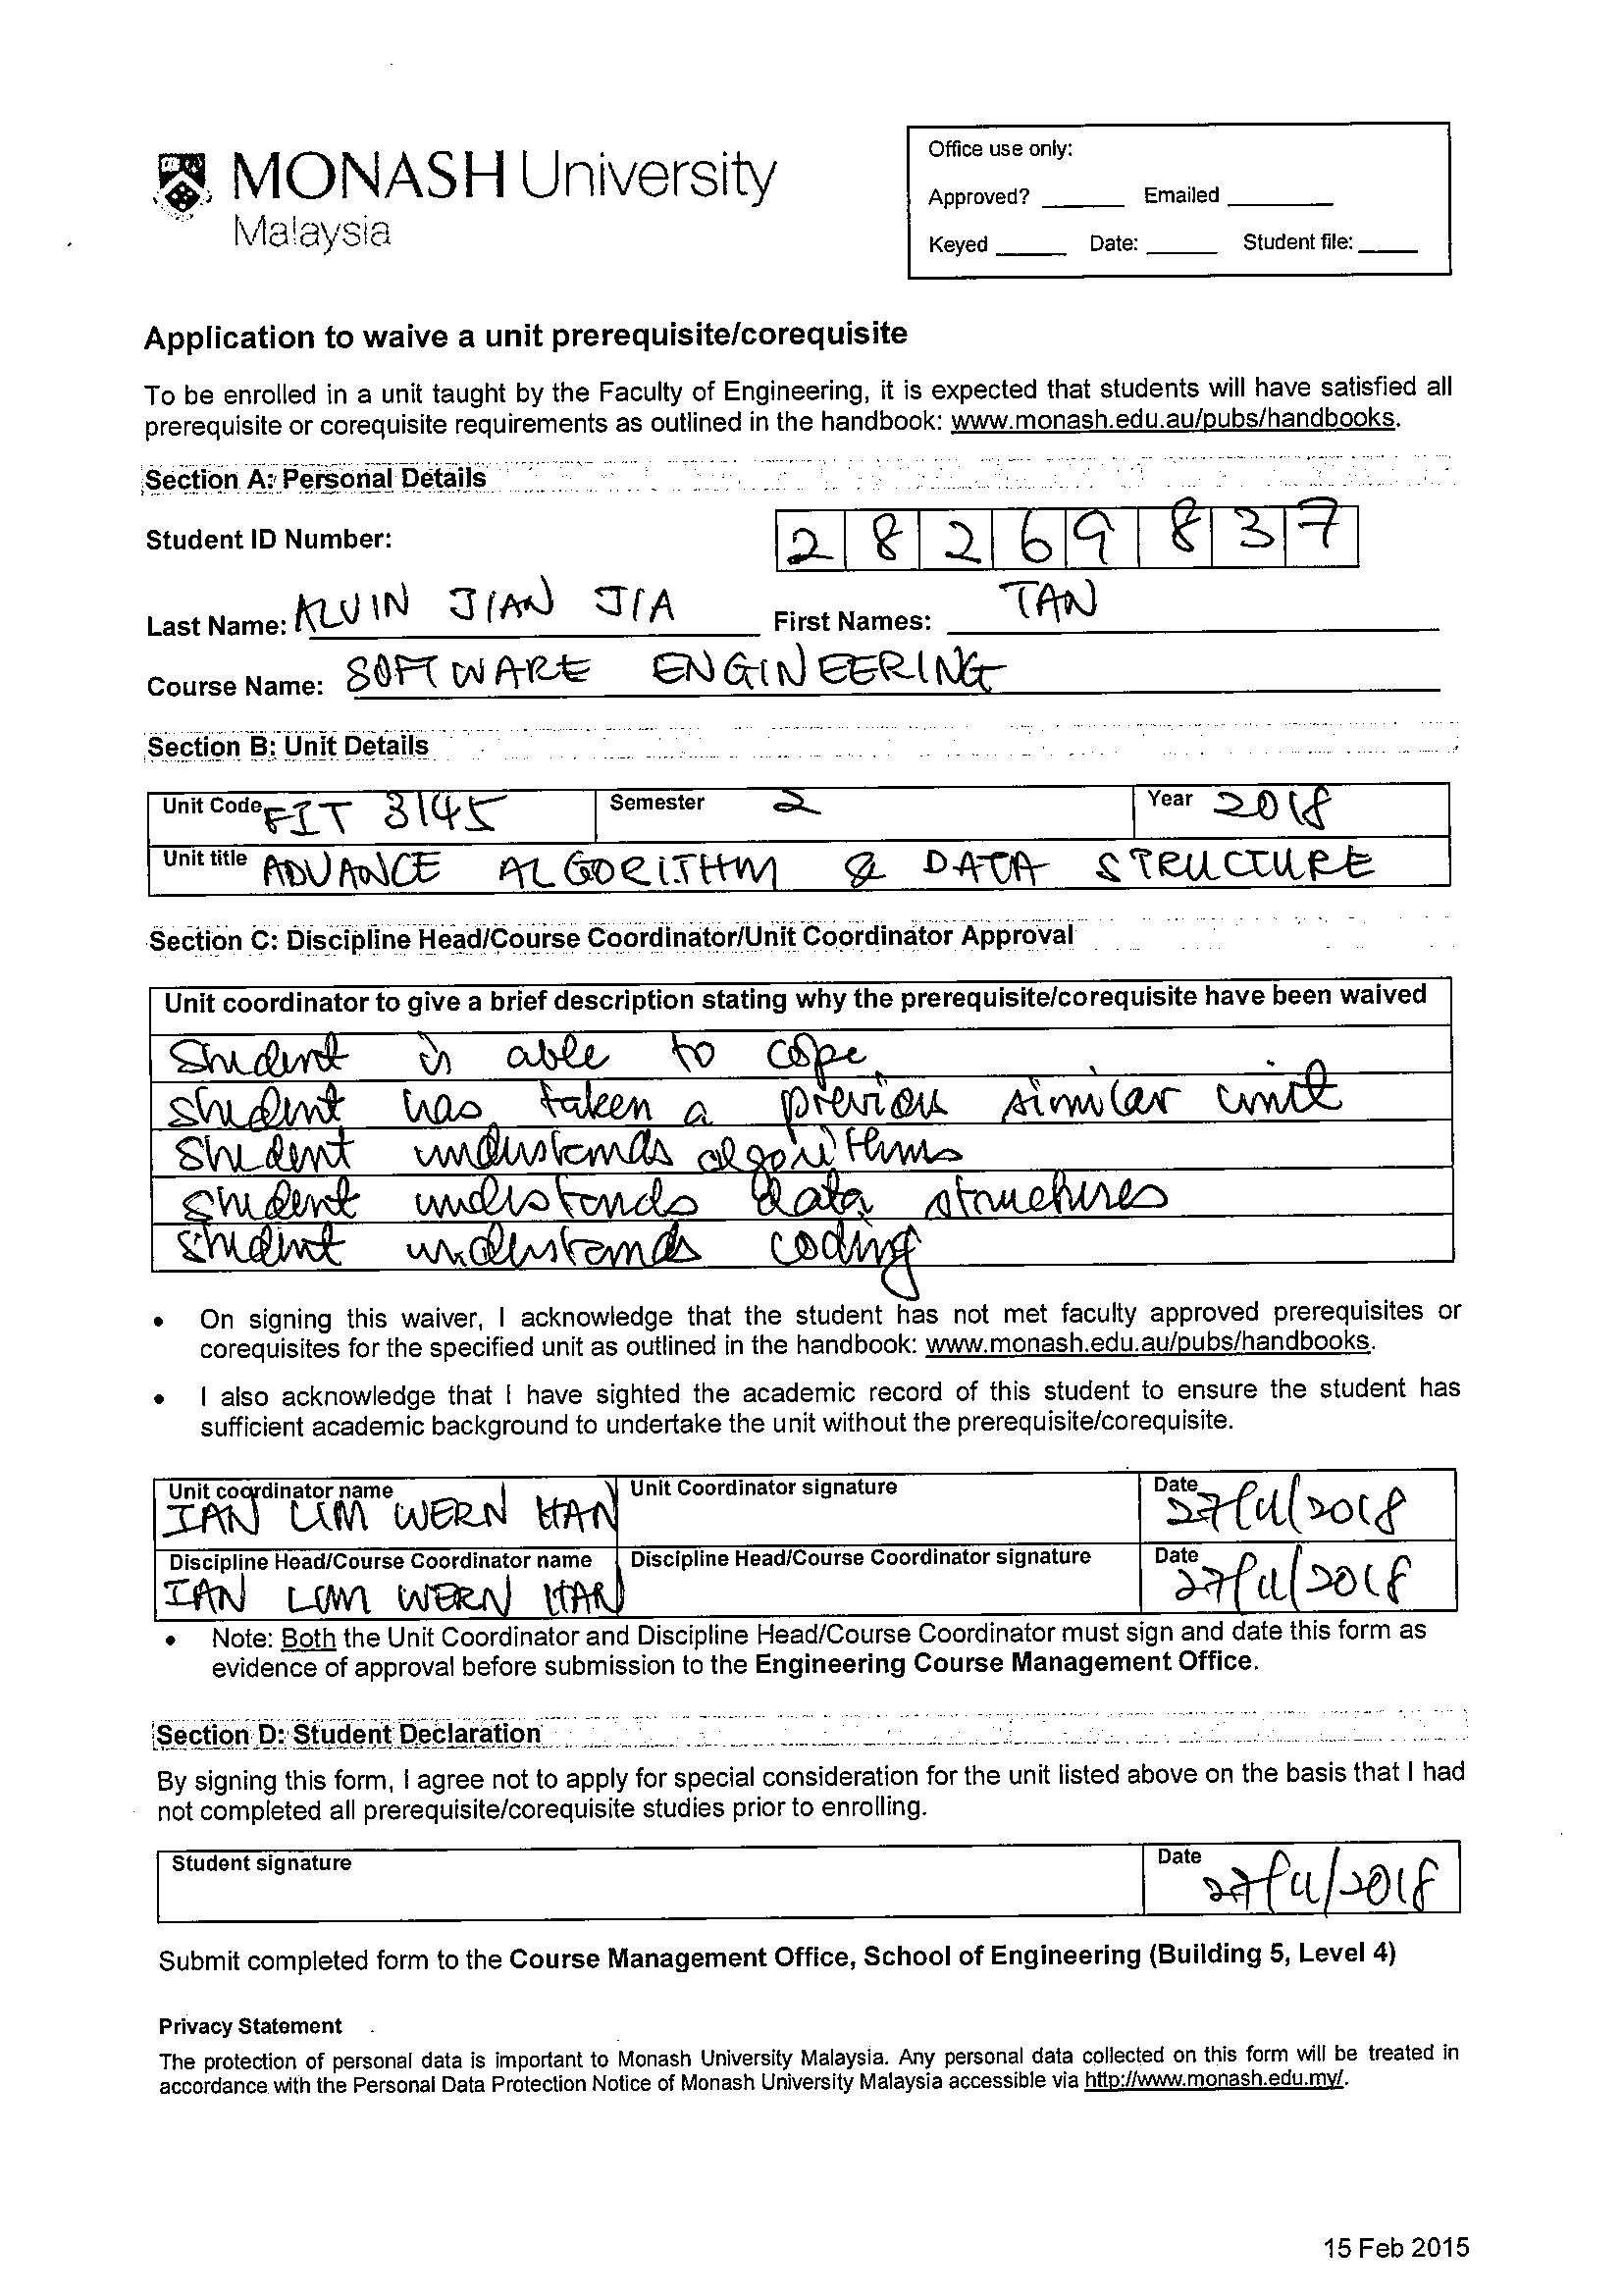 MONASH University
Malaysia
Office use only:
Approved? ______ Emailed ______
Keyed ______ Date: ______ Student file: ______
Application to waive a unit prerequisite/corequisite
To be enrolled in a unit taught by the Faculty of Engineering, it is expected that students will have satisfied all
prerequisite or corequisite requirements as outlined in the handbook: www.monash.edu.au/pubs/handbooks.
Section A: Personal Details
Student ID Number: 2 8 2 6 9 8 3 7
Last Name: ALVIN JIAN JIA First Names: TAN
Course Name: SOFTWARE ENGINEERING
Section B: Unit Details
Unit Code FIT 3145 Semester 2 Year 2018
Unit title ADVANCE ALGORITHM & DATA STRUCTURE
Section C: Discipline Head/Course Coordinator/Unit Coordinator Approval
Unit coordinator to give a brief description stating why the prerequisite/corequisite have been waived
Student is able to cope
Student has taken a previous similar unit
Student understands algorithms
Student understands data structures
Student understands coding
• On signing this waiver, I acknowledge that the student has not met faculty approved prerequisites or
corequisites for the specified unit as outlined in the handbook: www.monash.edu.au/pubs/handbooks.
• I also acknowledge that I have sighted the academic record of this student to ensure the student has
sufficient academic background to undertake the unit without the prerequisite/corequisite.
Unit coordinator name Unit Coordinator signature Date
IAN LIM WERN HAN 27/11/2018
Discipline Head/Course Coordinator name Discipline Head/Course Coordinator signature Date
IAN LIM WERN HAN 27/11/2018
• Note: Both the Unit Coordinator and Discipline Head/Course Coordinator must sign and date this form as
evidence of approval before submission to the Engineering Course Management Office.
Section D: Student Declaration
By signing this form, I agree not to apply for special consideration for the unit listed above on the basis that I had
not completed all prerequisite/corequisite studies prior to enrolling.
Student signature Date
27/11/2018
Submit completed form to the Course Management Office, School of Engineering (Building 5, Level 4)
Privacy Statement
The protection of personal data is important to Monash University Malaysia. Any personal data collected on this form will be treated in
accordance with the Personal Data Protection Notice of Monash University Malaysia accessible via http://www.monash.edu.my/.
15 Feb 2015